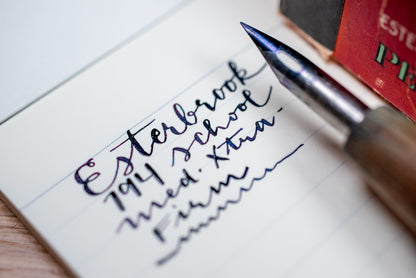 Esterbrook
794 school
med. Xtra.
Firm
ESTE
PE